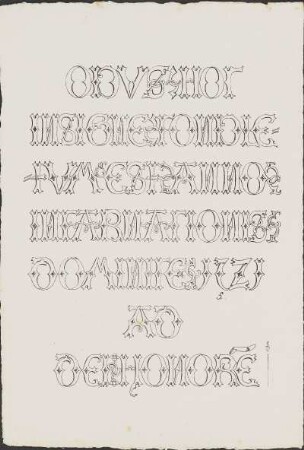 OPVS HOC
INSIGNE
TVM EST ANNO
INCARNATIONIS
DOMINICE
AD
DEI HONORE